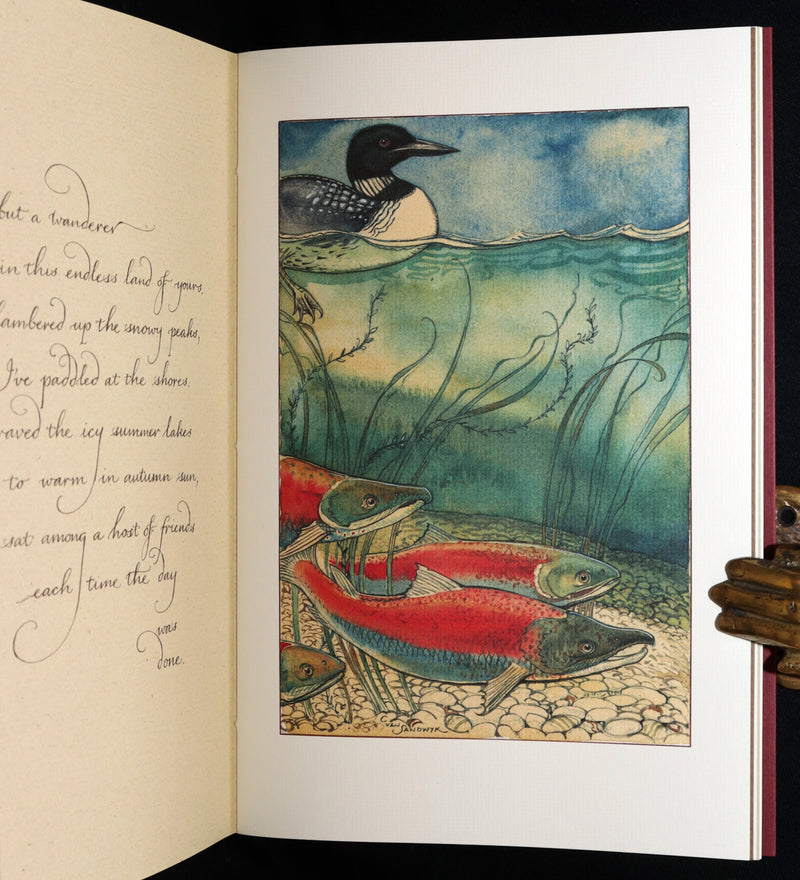 but a wanderer
in this endless land of yours.
lambered up the snowy peaks,
I've paddled at the shores.
raved the icy summer lakes
to warm in autumn sun,
sat among a host of friends
each time the day
was
done.
C. VAN
SANDWYK